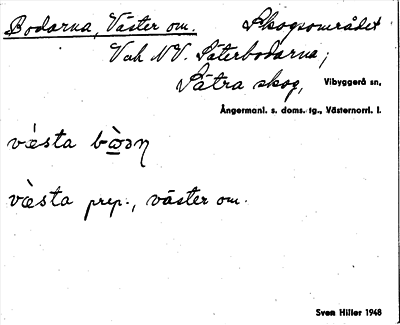 Bodarna, Väster om. Skogsområdet
V och NV. Säterbodarna;
Sätra skog, Vibyggerå sn,
Ångermanl. s. doms. tg., Västernorrl. l.
væ̀sta
væ̀sta prep., väster om.
Sven Hiller 1948